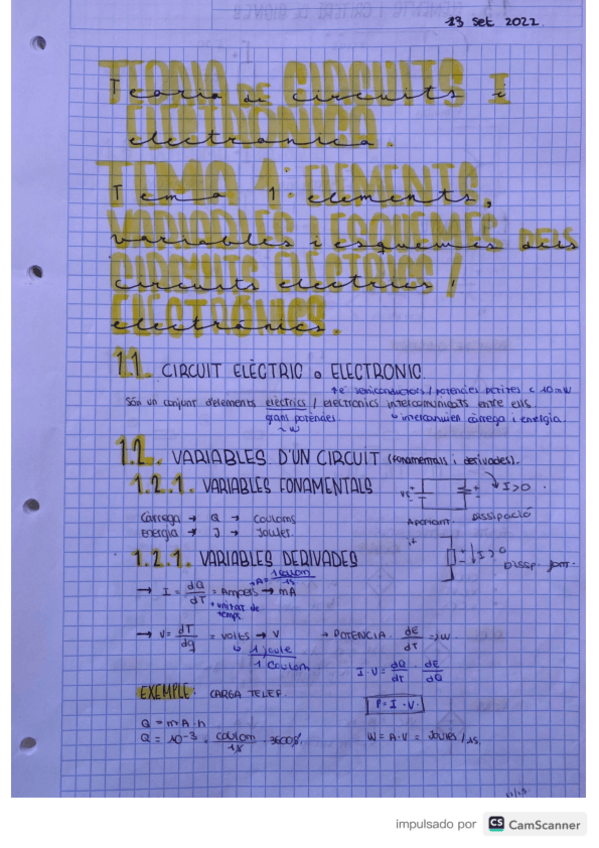 13 Set 2022
Teoria de circuits i
electrònica.
Tema 1: elements,
variables i esquemes dels
circuits elèctrics /
electrònics.
1.1. CIRCUIT ELÈCTRIC o ELECTRONIC.
semiconductors / potencies petites < 10mW
Són un conjunt d'elements elèctrics / electronics intercomunicats entre ells.
grans potències. intercanvien càrrega i energia.
~W
1.2. VARIABLES D'UN CIRCUIT (fonamentals i derivades).
1.2.1. VARIABLES FONAMENTALS
I>0
Càrrega → Q → Couloms
Energia → J → Joules.
Aportant. Dissipació
1.2.1. VARIABLES DERIVADES
I>0
Dissip.
→ I = dQ/dT = Ampers → mA
A = 1 coulom / 1s
unitat de
temps
→ V = dT/dq = volts → V
1 joule / 1 Coulom
→ POTENCIA dE/dT = W.
I·V = dQ/dT · dE/dQ
EXEMPLE: CARGA TELEF.
P = I · V.
Q = mA·h
Q = 10⁻³ · coulom/1s · 3600s.
W = A·V = Joules/1s.